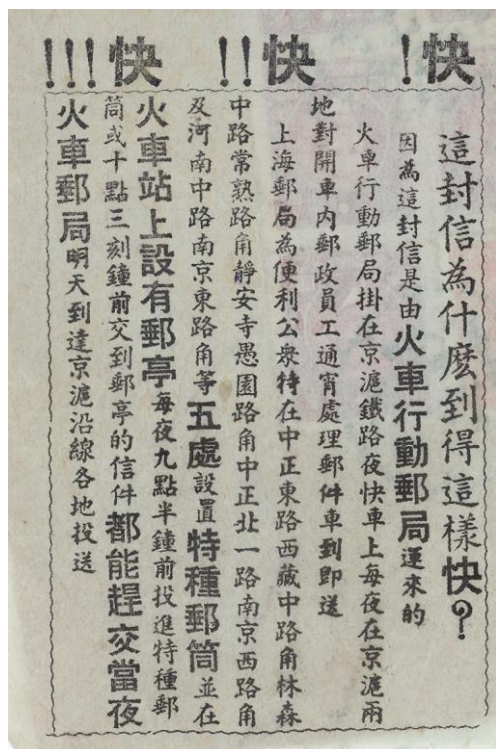 快! 快!! 快!!!
這封信為什麽到得這樣快?
因為這封信是由火車行動郵局運來的
火車行動郵局掛在京滬鐵路夜快車上每夜在京滬兩
地對開車內郵政員工通宵處理郵件車到即送
上海郵局為便利公衆特在中正東路西藏中路角林森
中路常熟路角靜安寺愚園路角中正北一路南京西路角
及河南中路南京東路角等五處設置特種郵筒並在
火車站上設有郵亭每夜九點半鐘前投進特種郵
筒或十點三刻鐘前交到郵亭的信件都能趕交當夜
火車郵局明天到達京滬沿線各地投送